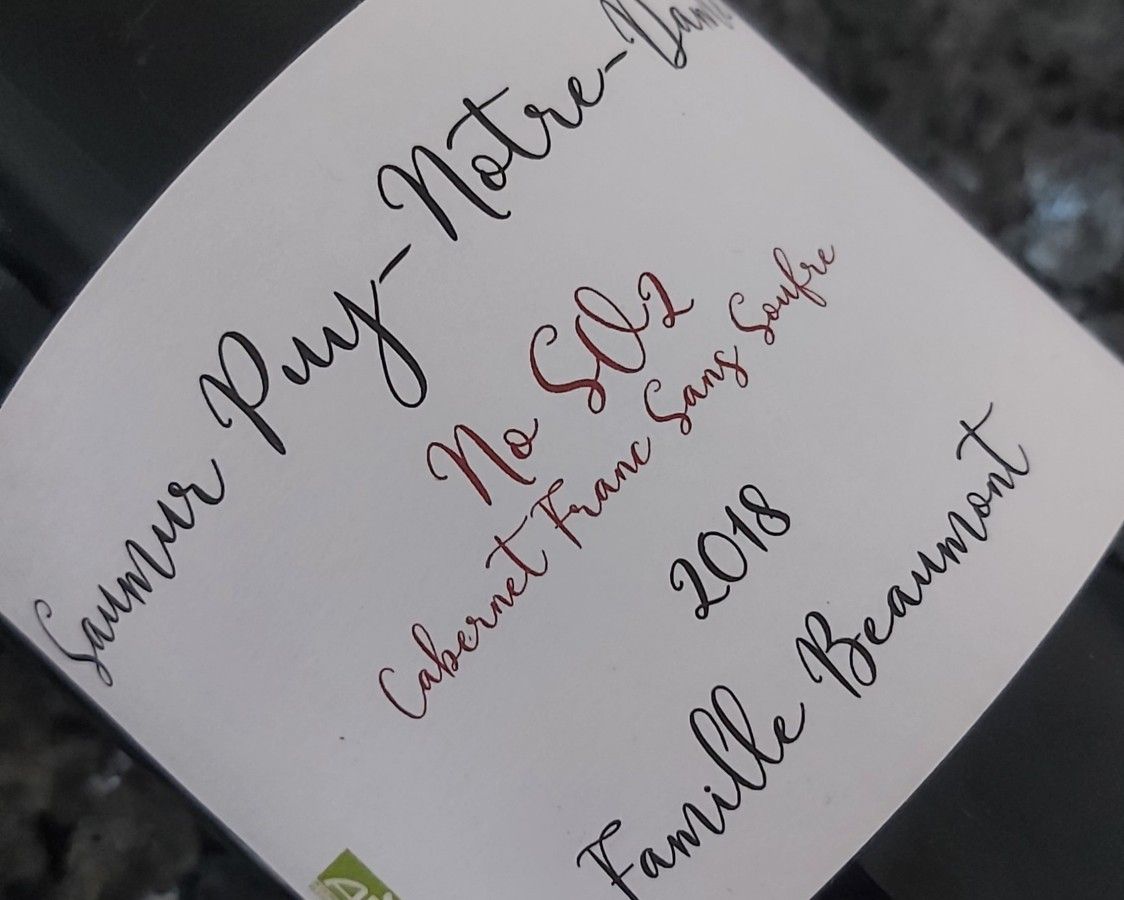 Saumur Puy-Notre-Dame
No SO2
Cabernet Franc Sans Soufre
2018
Famille Beaumont